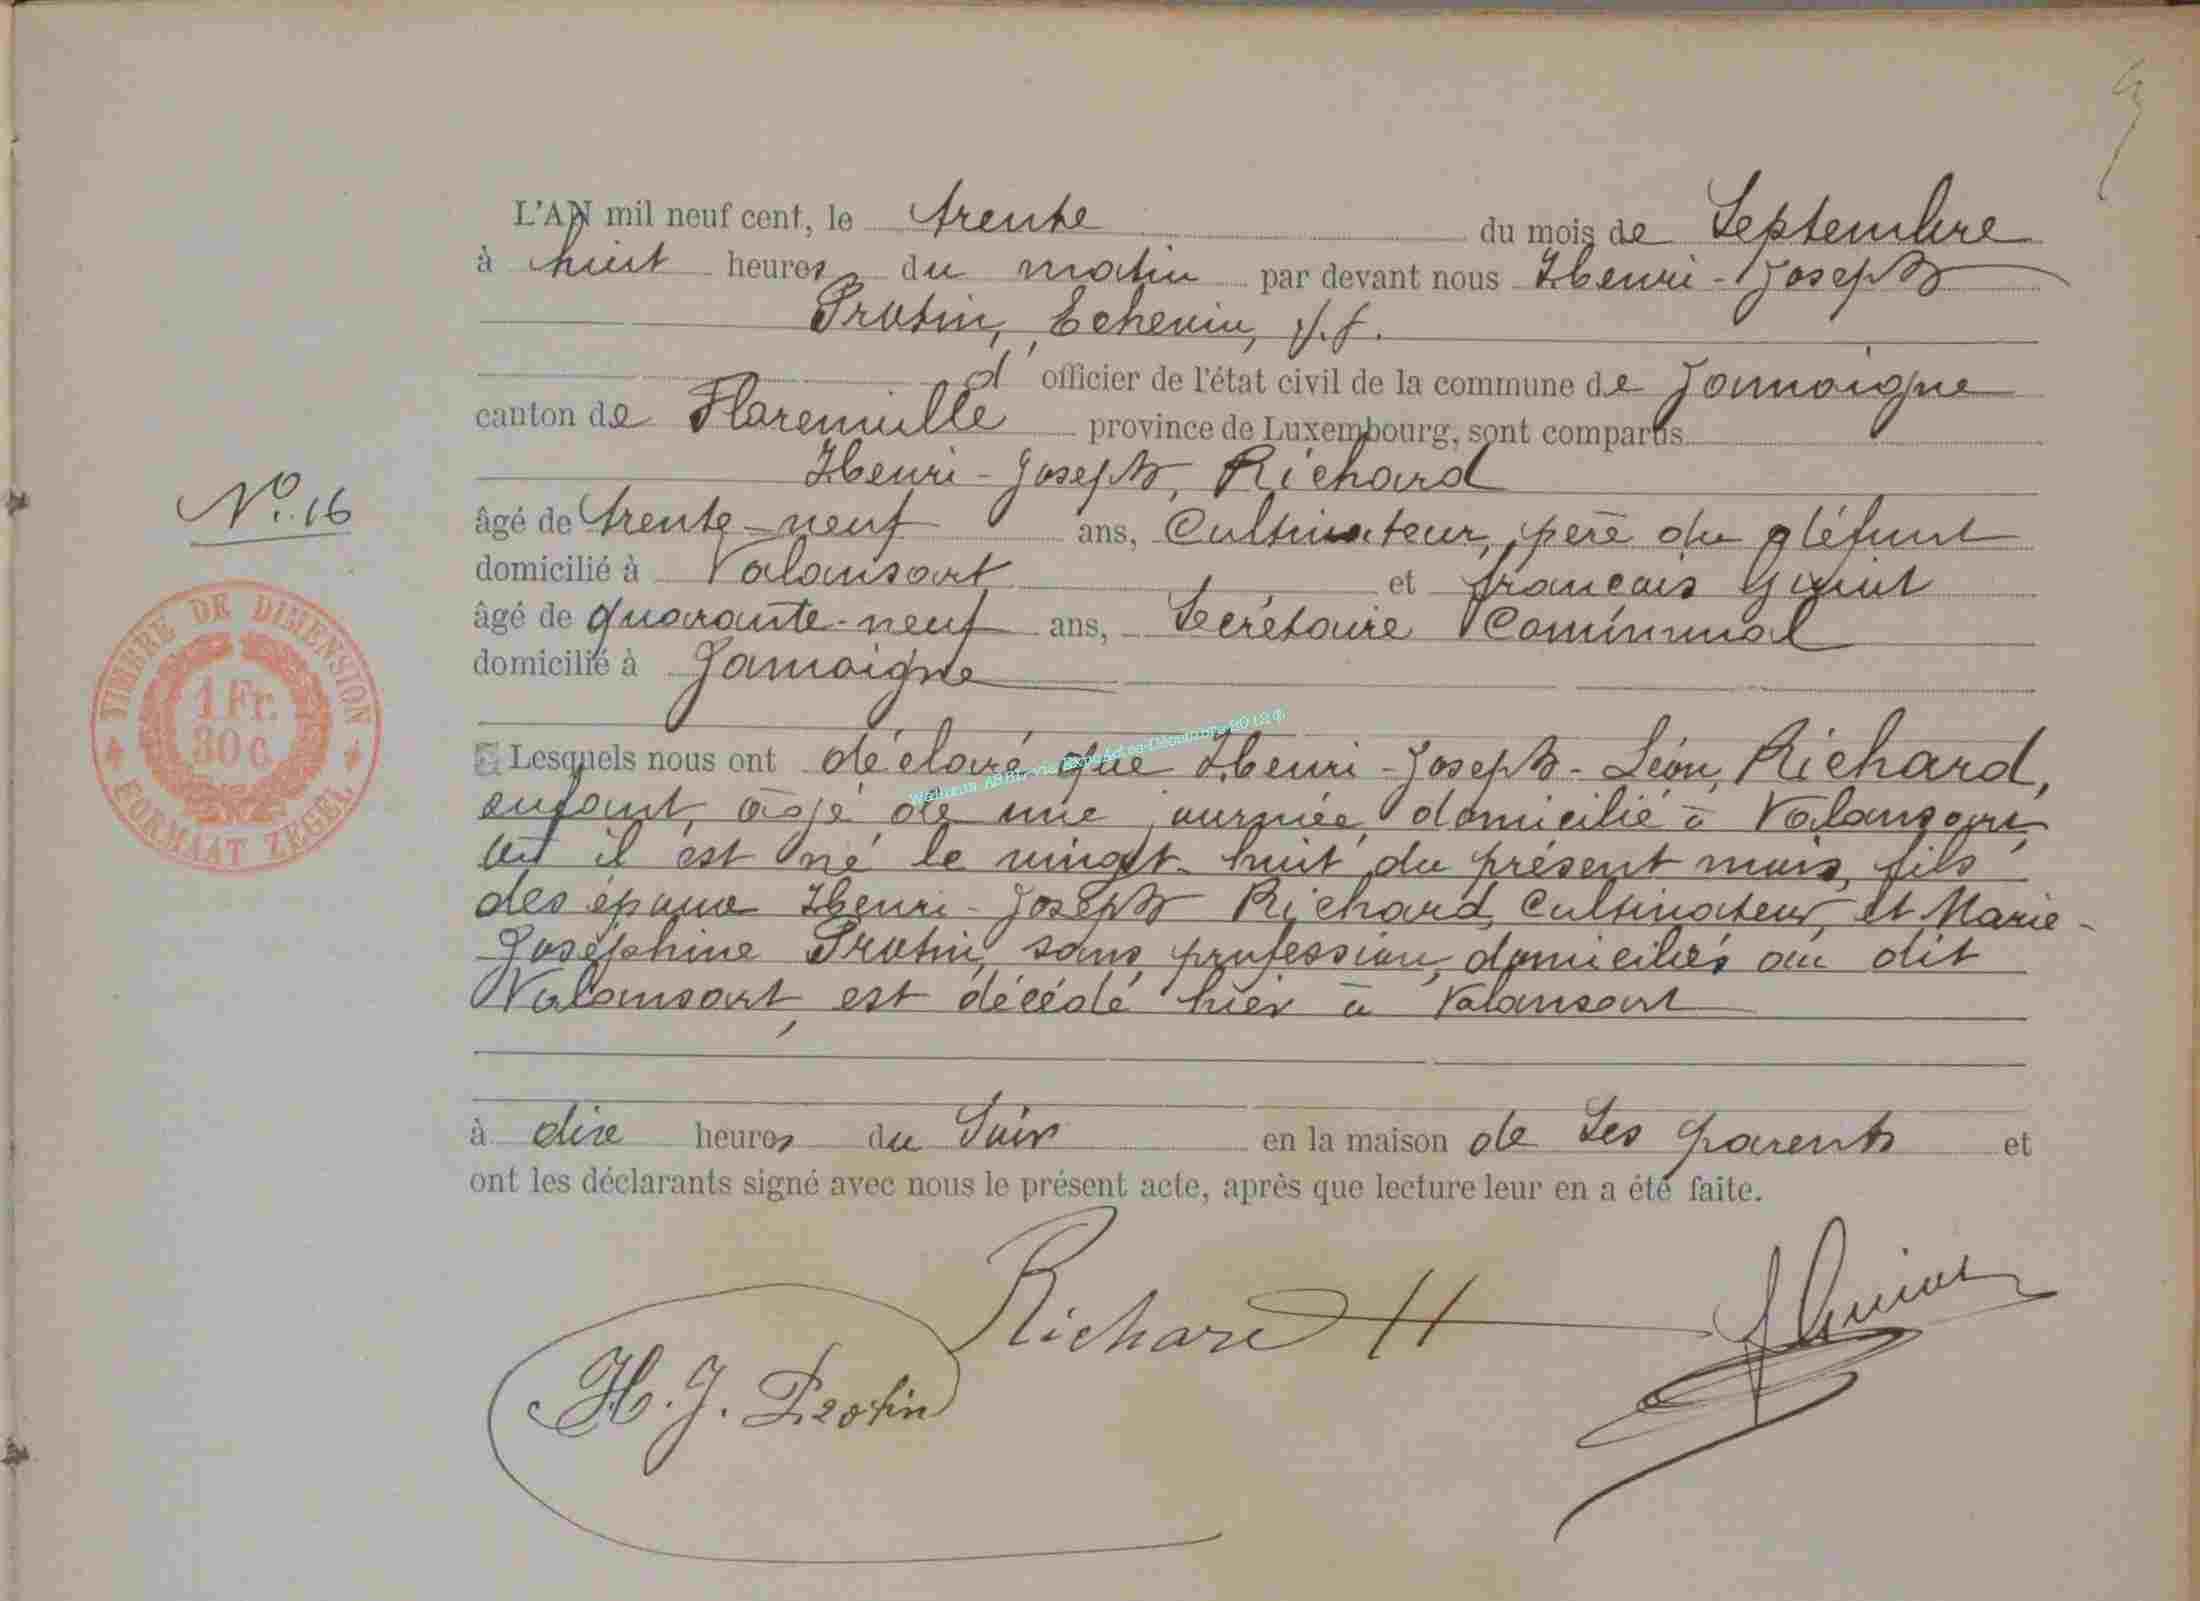 L'AN mil neuf cent, le trente du mois de Septembre
à huit heures du matin par devant nous Henri-Joseph
Protin, Echevin, f.f.
d' officier de l'état civil de la commune de Jamoigne
canton de Florenville province de Luxembourg, sont comparus
Henri-Joseph, Richard
N° 16
âgé de trente-neuf ans, Cultivateur, père du défunt
domicilié à Valansart et françois
âgé de quarante-neuf ans, Secrétaire Communal
domicilié à Jamoigne
TIMBRE DE DIMENSION
1 Fr.
30 c.
FORMAAT ZEGEL
Lesquels nous ont déclaré que Henri-Joseph-Léon, Richard,
enfant, âgé de une journée, domicilié à Valansart,
où il est né le vingt-huit du présent mois, fils
des époux Henri-Joseph Richard, Cultivateur, et Marie-
Joséphine Protin, sans profession, domiciliés au dit
Valansart, est décédé hier à Valansart
à dix heures du Soir en la maison de Ses parents et
ont les déclarants signé avec nous le présent acte, après que lecture leur en a été faite.
Richard H
H. J. Protin